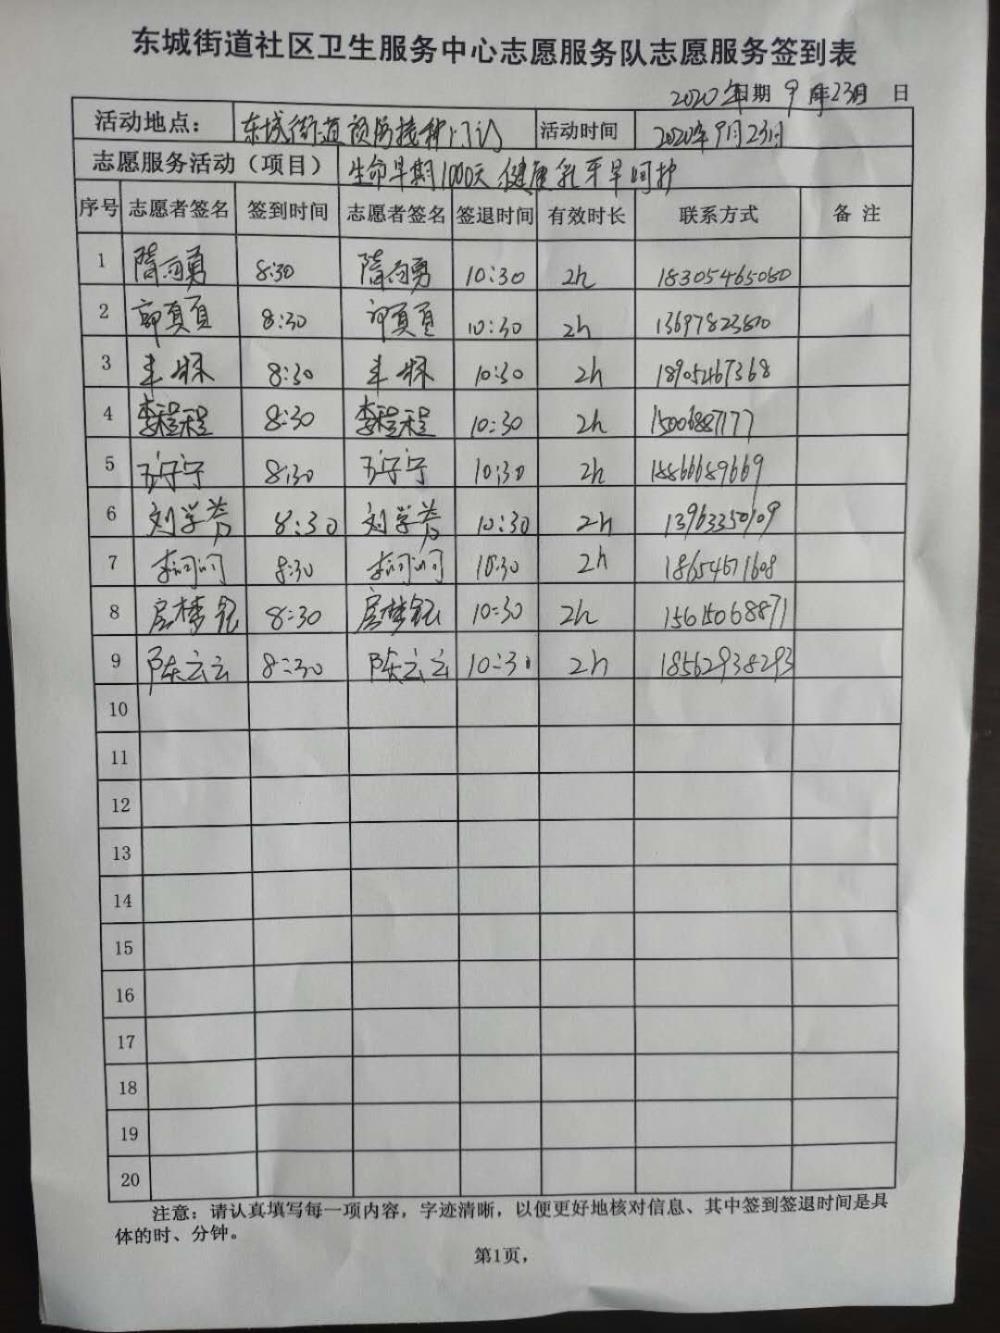 东城街道社区卫生服务中心志愿服务队志愿服务签到表
2020年日期 9月23日 日
活动地点： 东城街道预防接种门诊 活动时间 2020年9月23日
志愿服务活动（项目） 生命早期1000天 健康乳牙早呵护
序号 志愿者签名 签到时间 志愿者签名 签退时间 有效时长 联系方式 备 注
1 隋向勇 8:30 隋向勇 10:30 2h 18305465060
2 郭真真 8:30 郭真真 10:30 2h
3 8:30 10:30 2h 18905467368
4 李程程 8:30 李程程 10:30 2h 15006887177
5 8:30 10:30 2h 18866689669
6 刘学芳 8:30 刘学芳 10:30 2h 13963350109
7 李闪闪 8:30 李闪闪 10:30 2h 18654671608
8 房梦钰 8:30 房梦钰 10:30 2h 15615068871
9 陈云云 8:30 陈云云 10:30 2h 18562938293
10
11
12
13
14
15
16
17
18
19
20
注意：请认真填写每一项内容，字迹清晰，以便更好地核对信息、其中签到签退时间是具
体的时、分钟。
第1页，